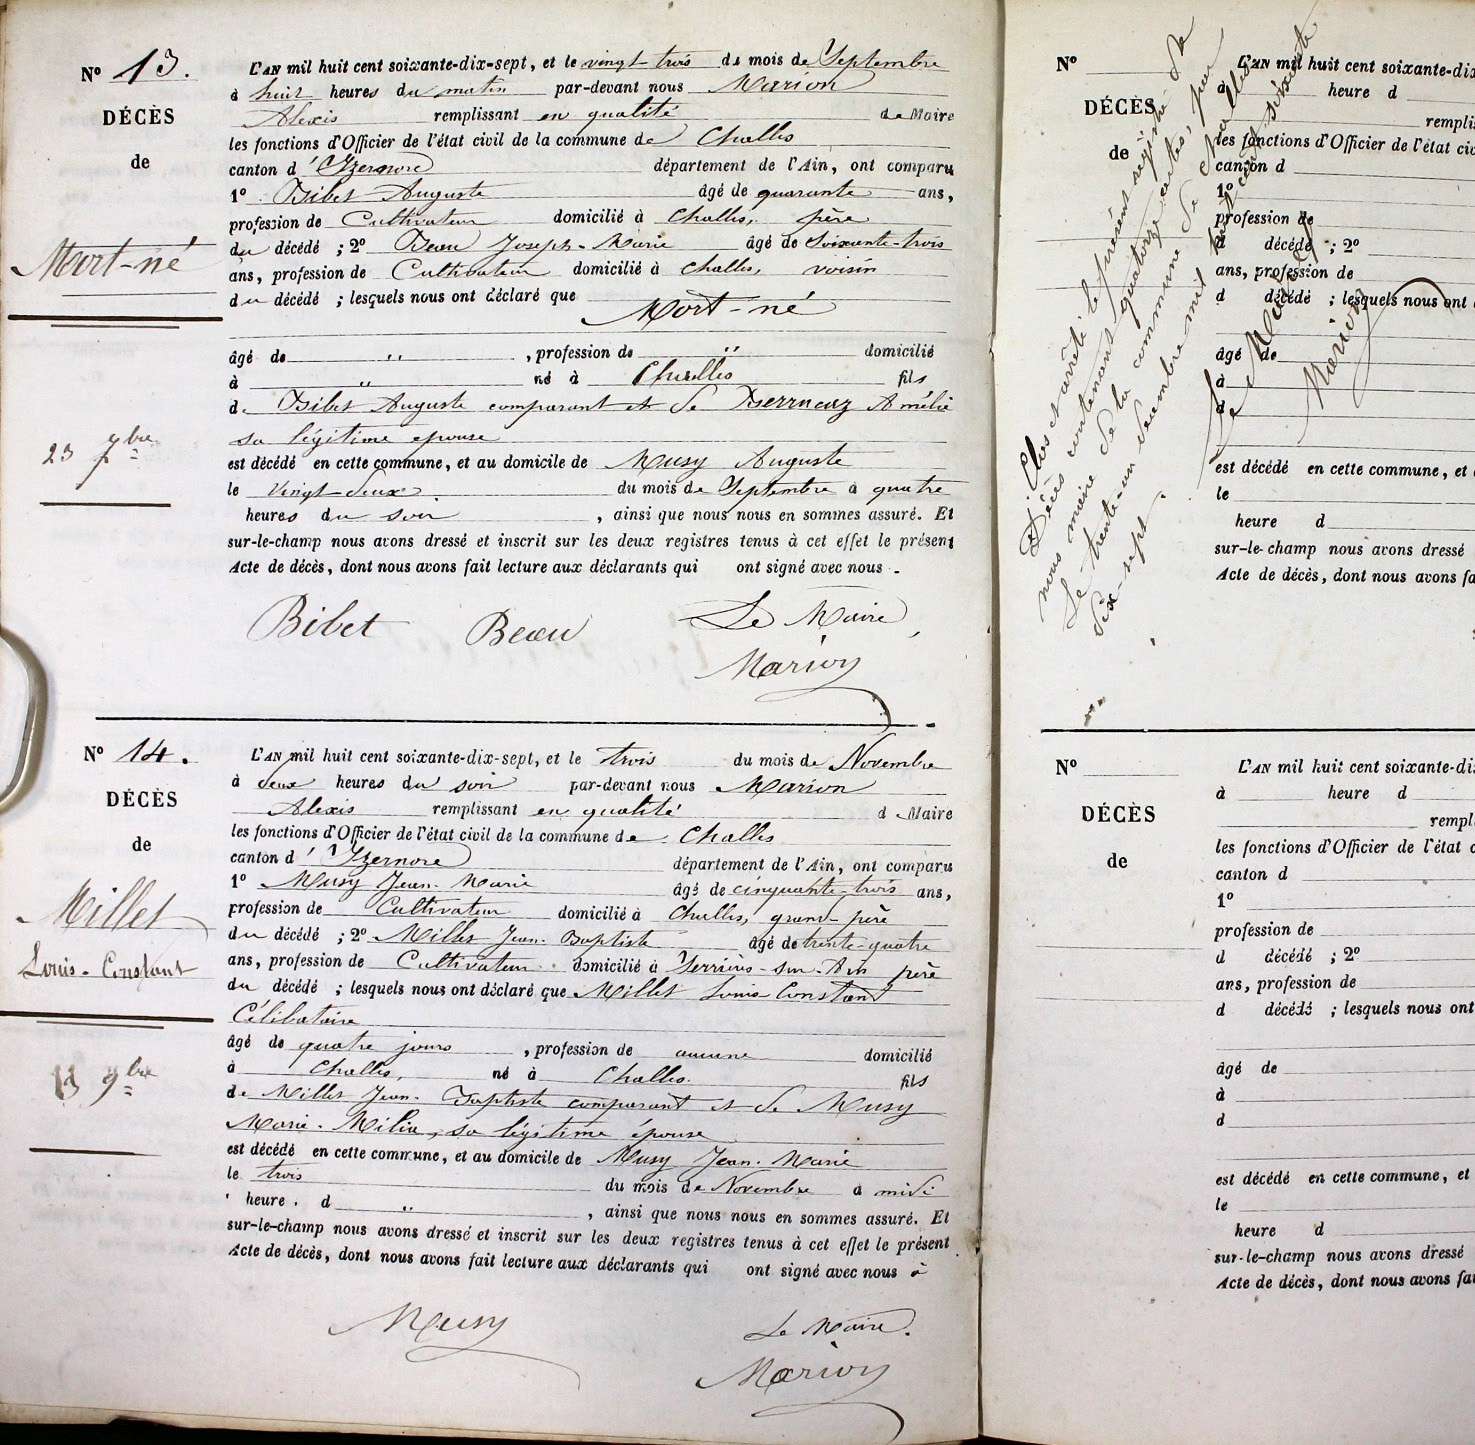 N° 13.
DÉCÈS
de
Mort-né
23 7bre
L'AN mil huit cent soixante-dix-sept, et le vingt-trois du mois de Septembre
à huit heures du matin par-devant nous Marion
Alexis remplissant en qualité de Maire
les fonctions d'Officier de l'état civil de la commune de Challes
canton d'Izernore département de l'Ain, ont comparu
1° Bibet Auguste âgé de quarante ans,
profession de Cultivateur domicilié à Challes, père
du décédé ; 2° Beau Joseph-Marie âgé de Soixante-trois
ans, profession de Cultivateur domicilié à Challes, voisin
du décédé ; lesquels nous ont déclaré que
Mort-né
âgé de " , profession de " domicilié
à " né à Challes fils
de Bibet Auguste comparant et de Amélie
sa légitime épouse
est décédé en cette commune, et au domicile de Musy Auguste
le vingt-deux du mois de Septembre à quatre
heures du soir , ainsi que nous nous en sommes assuré. Et
sur-le-champ nous avons dressé et inscrit sur les deux registres tenus à cet effet le présent
Acte de décès, dont nous avons fait lecture aux déclarants qui ont signé avec nous.
Bibet Beau Le Maire,
Marion
N° 14.
DÉCÈS
de
Millet
Louis-Constant
9bre
L'AN mil huit cent soixante-dix-sept, et le trois du mois de Novembre
à deux heures du soir par-devant nous Marion
Alexis remplissant en qualité d Maire
les fonctions d'Officier de l'état civil de la commune de Challes
canton d'Izernore département de l'Ain, ont comparu
1° Musy Jean-Marie âgé de cinquante-trois ans,
profession de Cultivateur domicilié à Challes, grand-père
du décédé ; 2° Millet Jean-Baptiste âgé de trente-quatre
ans, profession de Cultivateur domicilié à Serrières-sur-Ain père
du décédé ; lesquels nous ont déclaré que Millet Louis Constant
Célibataire
âgé de quatre jours , profession de aucune domicilié
à Challes, né à Challes. fils
de Millet Jean-Baptiste comparant et de Musy
Marie-Milie, sa légitime épouse
est décédé en cette commune, et au domicile de Musy Jean-Marie
le trois du mois de Novembre à midi
heure . d " , ainsi que nous nous en sommes assuré. Et
sur-le-champ nous avons dressé et inscrit sur les deux registres tenus à cet effet le présent
Acte de décès, dont nous avons fait lecture aux déclarants qui ont signé avec nous
Musy Le Maire.
Marion
N°
DÉCÈS
de
L'AN mil huit cent soixante-di
à heure d
remplis
les fonctions d'Officier de l'état civ
canton d
1°
profession de
d décédé ; 2°
ans, profession de
d décédé ; lesquels nous ont
âgé de
à
d
est décédé en cette commune, et
le
heure d
sur-le-champ nous avons dressé
Acte de décès, dont nous avons fa
Clos et arrêté le présent registre de
Décès contenant quatorze actes, par
nous maire de la commune de Challes
le trente-un décembre mil huit cent soixante
dix-sept.
Le Maire
Marion
N°
DÉCÈS
de
L'AN mil huit cent soixante-di
à heure d
rempl
les fonctions d'Officier de l'état c
canton d
1°
profession de
d décédé ; 2°
ans, profession de
d décédé ; lesquels nous ont
âgé de
à
d
est décédé en cette commune, et
le
heure d
sur-le-champ nous avons dressé
Acte de décès, dont nous avons fa